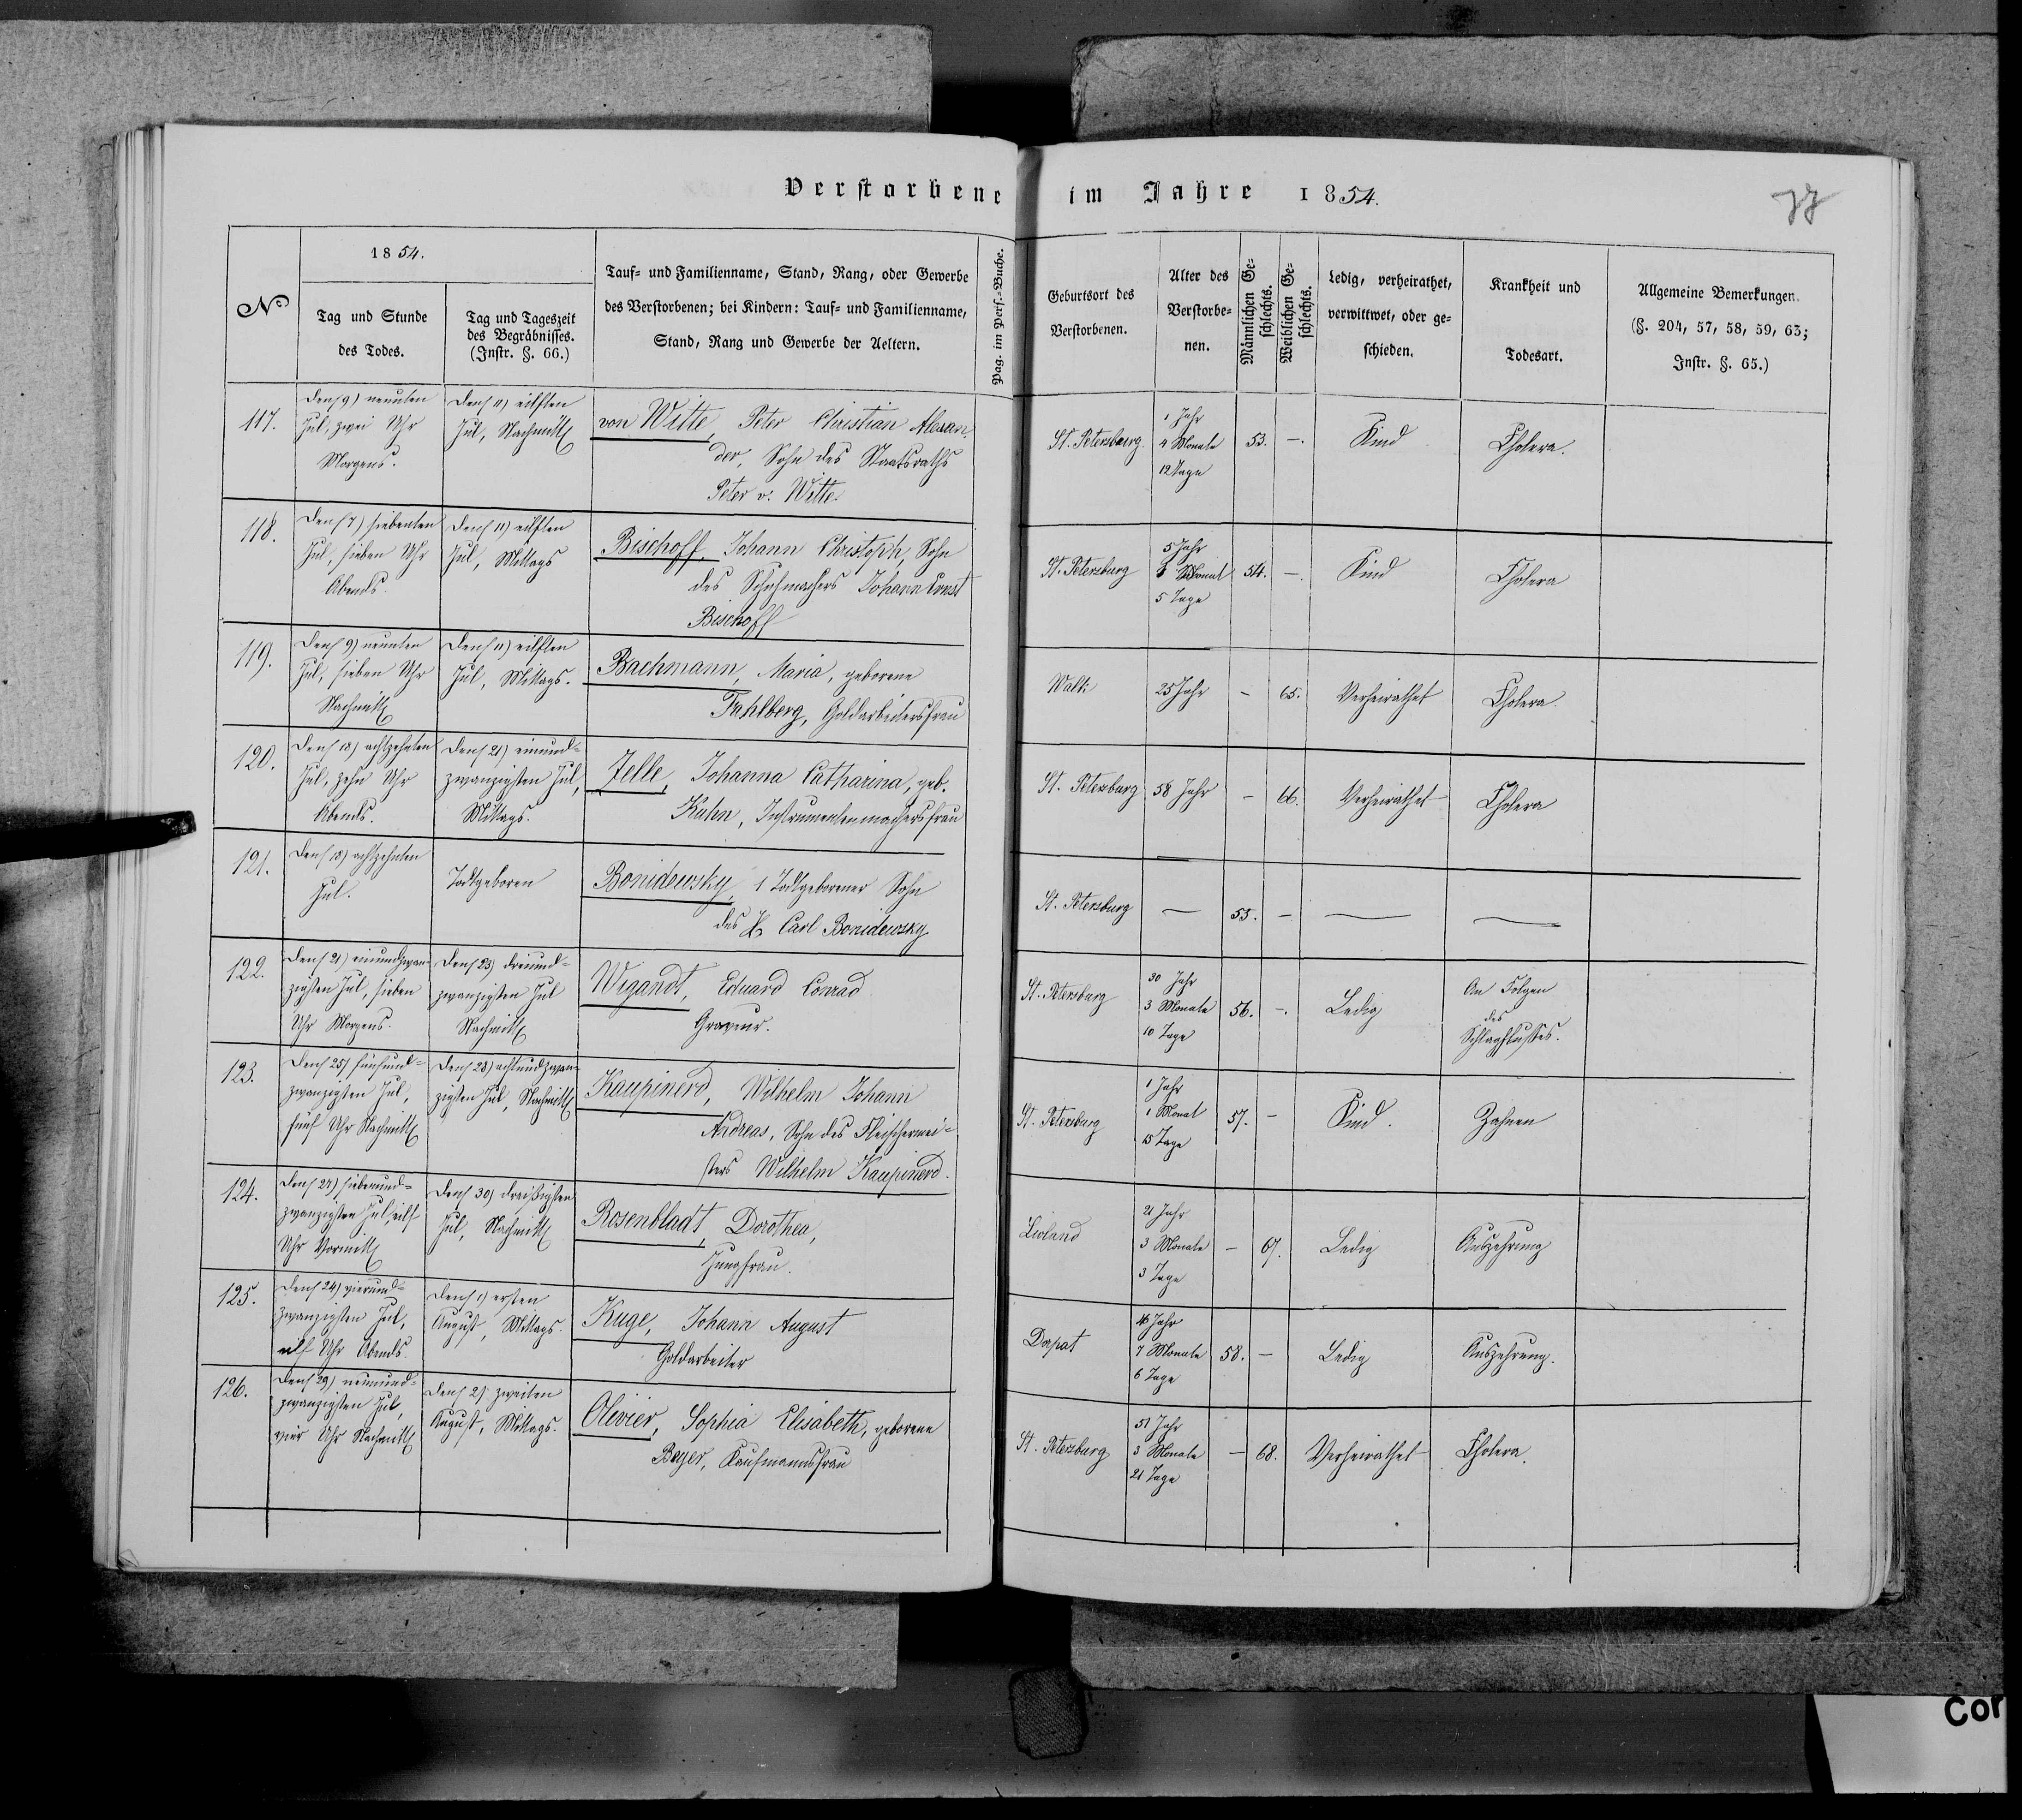 Verstorbene im Jahre 1854.
77
No
1854.
Tag und Stunde
des Todes.
Tag und Tageszeit
des Begräbnisses.
(Instr. §. 66.)
Tauf= und Familienname, Stand, Rang, oder Gewerbe
des Verstorbenen; bei Kindern: Tauf= und Familienname,
Stand, Rang und Gewerbe der Aeltern.
Pag. im Pers.=Buche.
Geburtsort des
Verstorbenen.
Alter des
Verstorbe=
nen.
Männlichen Ge=
schlechts.
Weiblichen Ge=
schlechts.
Ledig, verheirathet,
verwittwet, oder ge=
schieden.
Krankheit und
Todesart.
Allgemeine Bemerkungen.
(§. 204, 57, 58, 59, 63;
Instr. §. 65.)
117.
Den 9) neunten
Jul, zwei Uhr
Morgens.
Den 11) eilften
Jul, Nachmitt
von Witte Peter Christian Alexan
der, Sohn des Staatsraths
Peter v: Witte.
St. Petersburg.
1 Jahr
4 Monate
12 Tage
53.
—.
Kind
Cholera.
118.
Den 7) siebenten
Jul, sieben Uhr
Abends.
Den 11) eilften
Jul, Mittags
Bischoff, Johann Christoph, Sohn
des Schuhmachers Johann Ernst
Bischoff
St. Petersburg
5 Jahr
Monat
5 Tage
54.
—.
Kind
Cholera
119.
Den 9) neunten
Jul, sieben Uhr
Nachmitt
Den 11) eilften
Jul, Mittags.
Bachmann, Maria, geborene
Fahlberg, Goldarbeitersfrau
Walk
25 Jahr
—
65.
Verheirathet
Cholera.
120.
Den 18) achtzehnten
Jul, zehn Uhr
Abends.
Den 21) einund=
zwanzigsten Jul,
Mittags.
Zelle, Johanna Catharina, geb.
Kuhn, Instrumentenmachersfrau
St. Petersburg
58 Jahr
—
66.
Verheirathet
Cholera
121.
Den 18) achtzehnten
Jul.
Todtgeboren
Bonidewsky, 1 Todtgeborener Sohn
des H. Carl Bonidewsky
St. Petersburg
—
55.
—
—
—
122.
Den 21) einundzwan=
zigsten Jul, sieben
Uhr Morgens.
Den 23) dreiund=
zwanzigsten Jul
Nachmitt
Wigandt, Eduard Conrad
Graveur.
St. Petersburg
30 Jahr
3 Monate
10 Tage
56.
—.
Ledig
An Folgen
des
Schlagflusses.
123.
Den 25) fünfund=
zwanzigsten Jul,
fünf Uhr Nachmitt
Den 28) achtundzwan=
zigsten Jul, Nachmitt
Kaupinerd, Wilhelm Johann
Andreas, Sohn des Fleischermei=
sters Wilhelm Kaupinerd.
St. Petersburg
1 Jahr
1 Monat
15 Tage
57.
—
Kind.
Zahnen
124.
Den 27) siebenund=
zwanzigsten Jul, eilf
Uhr Vormitt
Den 30) dreißigsten
Jul, Nachmitt
Rosenbladt, Dorothea,
Jungfrau.
Livland
21 Jahr
3 Monate
3 Tage
—
67.
Ledig
Auszehrung
125.
Den 24) vierund=
zwanzigsten Jul,
eilf Uhr Abends
Den 1) ersten
August, Mittags.
Kuge, Johann August
Goldarbeiter
Dorpat
46 Jahr
7 Monate
6 Tage
58.
—
Ledig
Auszehrung.
126.
Den 29) neunund=
zwanzigsten Jul,
vier Uhr Nachmitt
Den 2) zweiten
August, Mittags.
Olivier, Sophia Elisabeth, geborene
Beyer, Kaufmannsfrau
St. Petersburg
51 Jahr
3 Monate
21 Tage
—
68.
Verheirathet
Cholera.
Cor